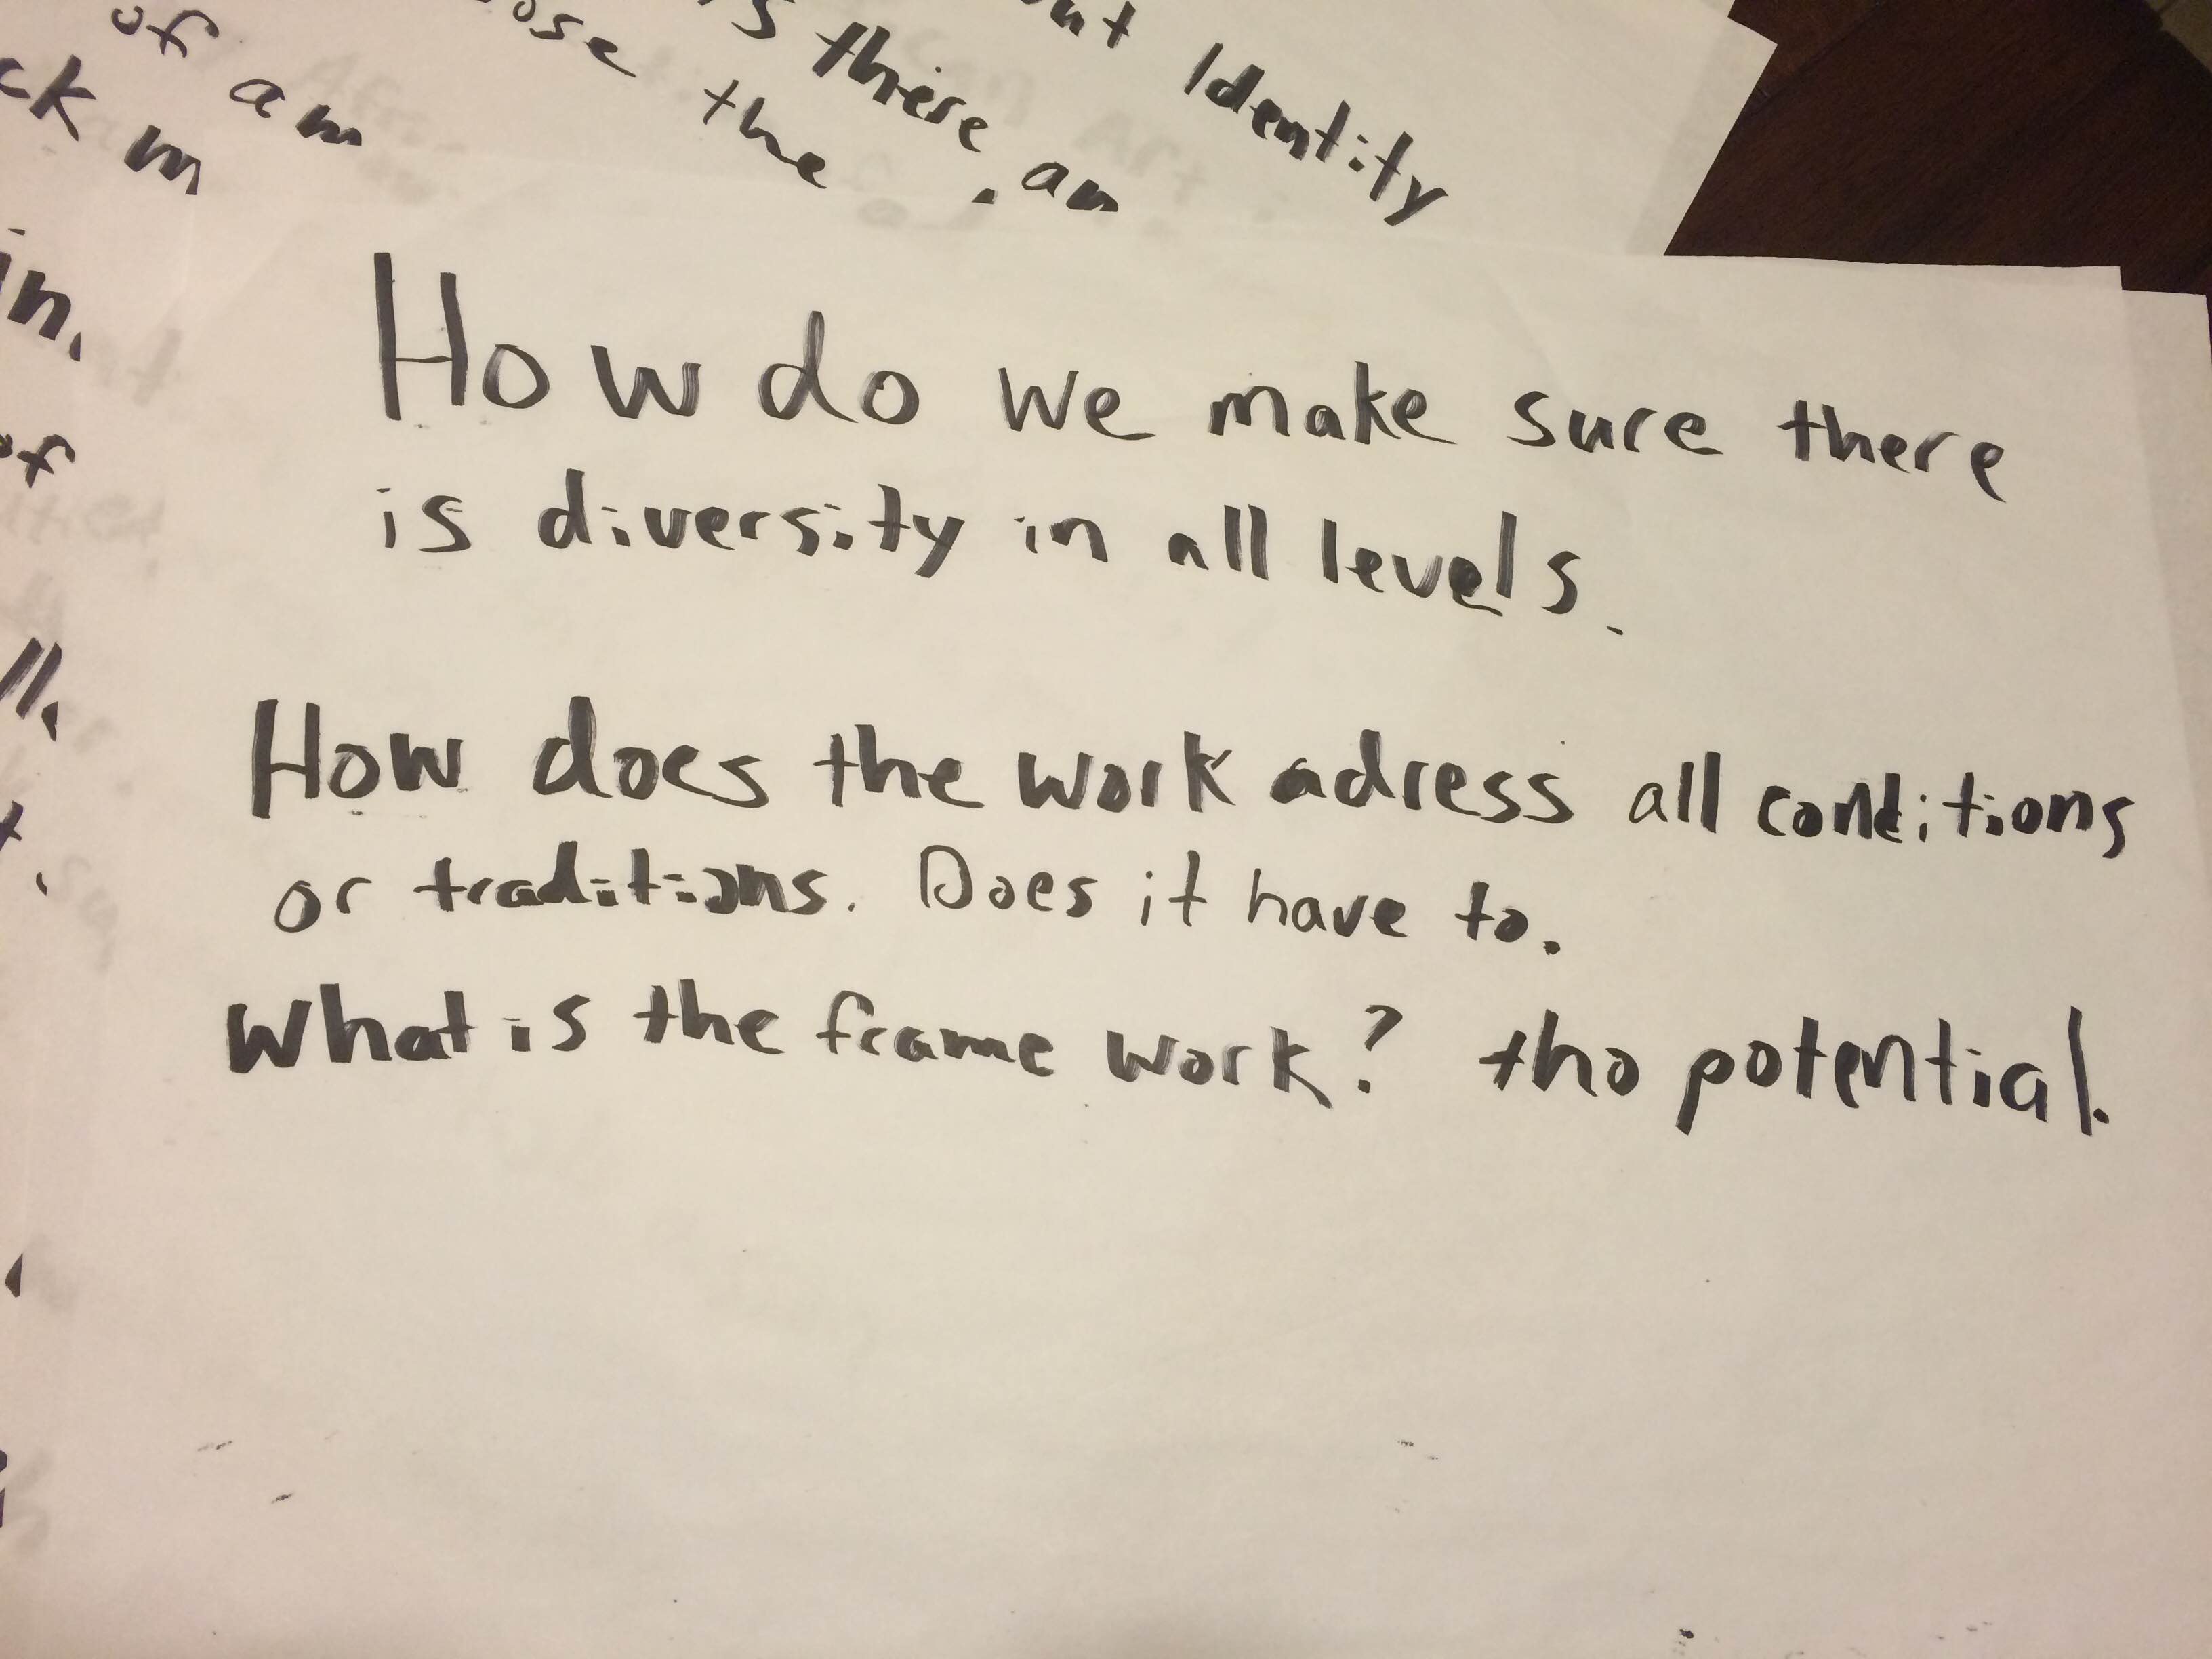 of am
ck m
ose the
s there, an
Identity
in,
of
How do we make sure there
is diversity in all levels.
How does the work adress all conditions
or traditions. Does it have to.
What is the frame work? tho potential.